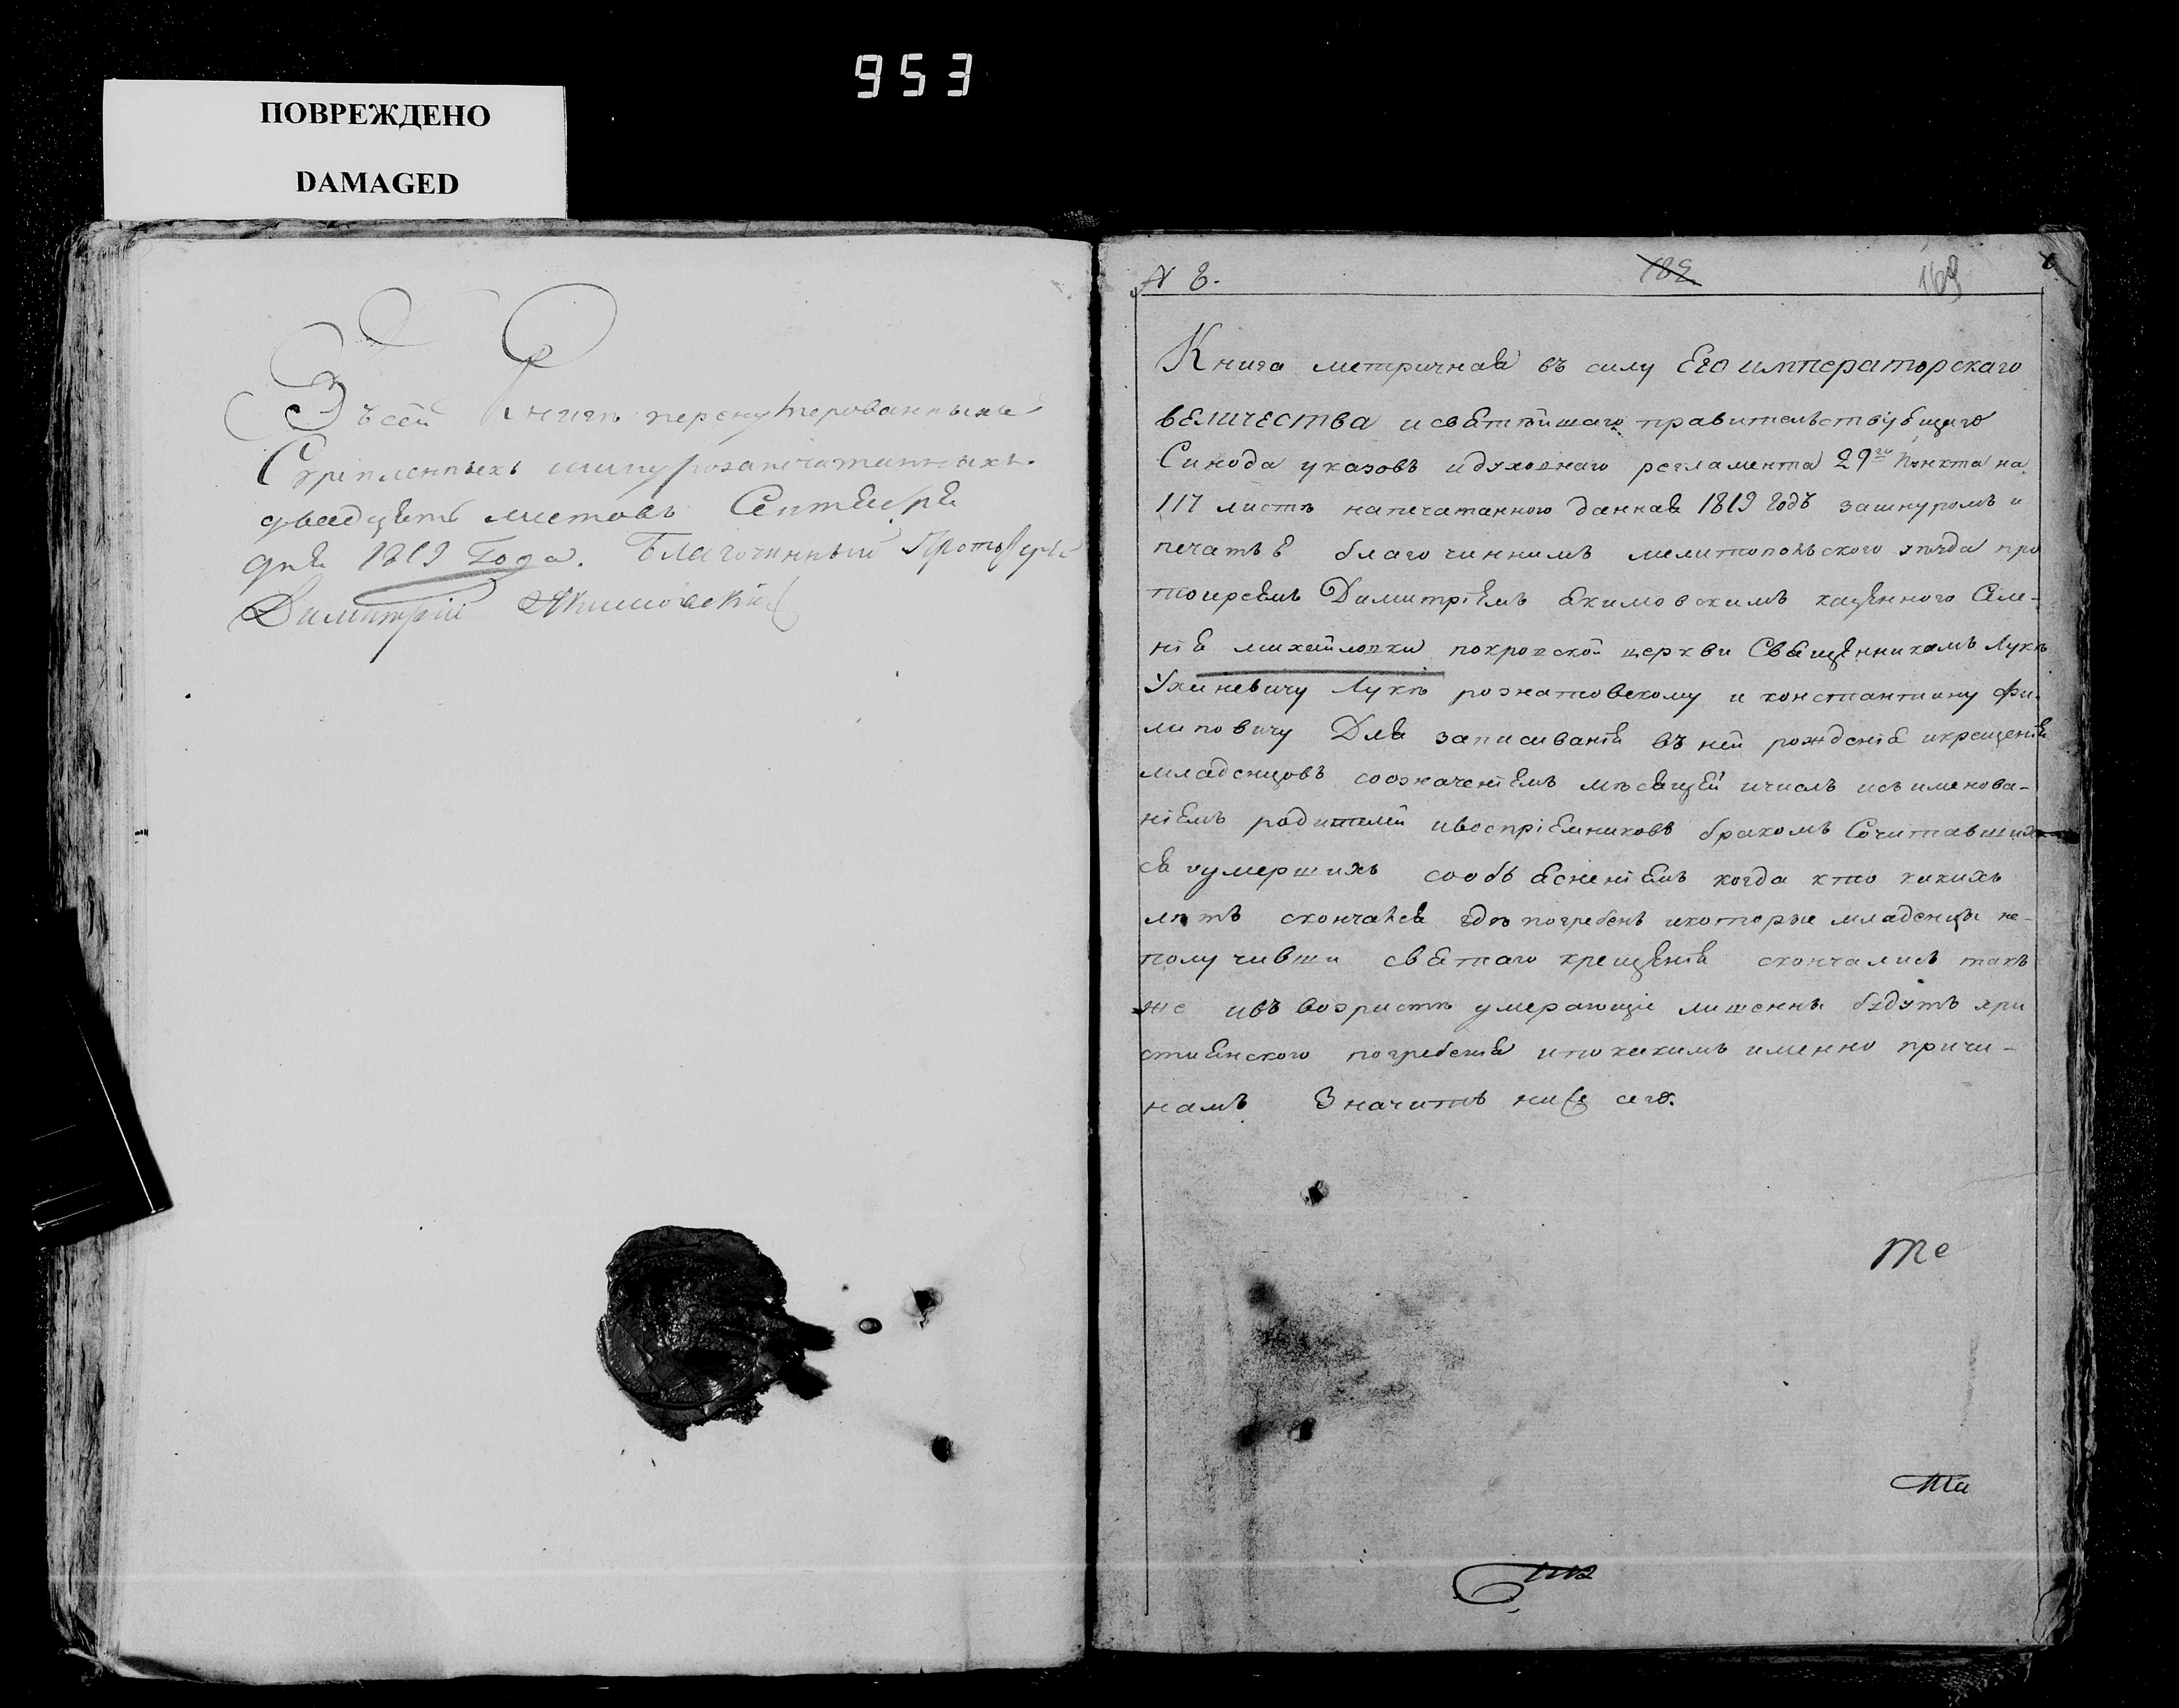 953
ПОВРЕЖДЕНО
DAMAGED
Въ сей Книгѣ перенумерованныхъ
Скрѣпленныхъ шнурозапечатанныхъ
двадцять листовъ Сентября
дня 1819 Года. Благочинный Протоіерей
Димитрій Якимовскій
№ 8.
189
169
Книга метричная въ силу Его императорскаго
величества и святѣйшаго правительствующаго
Синода указовъ и духовнаго регламента 29го пункта на
117 листѣ напечатанного данная 1819 годъ за шнуромъ и
печатью благочиннимъ мелитопольского уѣзда про
тоиреемъ Димитріемъ Якимовскимъ казенного Селе-
нія михайловки покровской церкви Священникомъ Лукѣ
Лукѣ рознатовскому и константину Фи-
липовичу Для записиванія въ ней рожденія и крещенія
младенцовъ со означеніемъ мѣсяцей и числъ и съ именова-
ніемъ родителей и воспріемниковъ бракомъ Сочитавшихъ
ся и умершихъ со объясненіемъ когда кто какихъ
лѣтъ скончался гдѣ погребенъ и которые младенцы не-
получивши святаго крещенія скончались такъ
же и въ возрастѣ умерающіе лишенны будутъ хри
стиянского погребенія и по какимъ именно причи-
намъ Значить ниже сего.
те
та